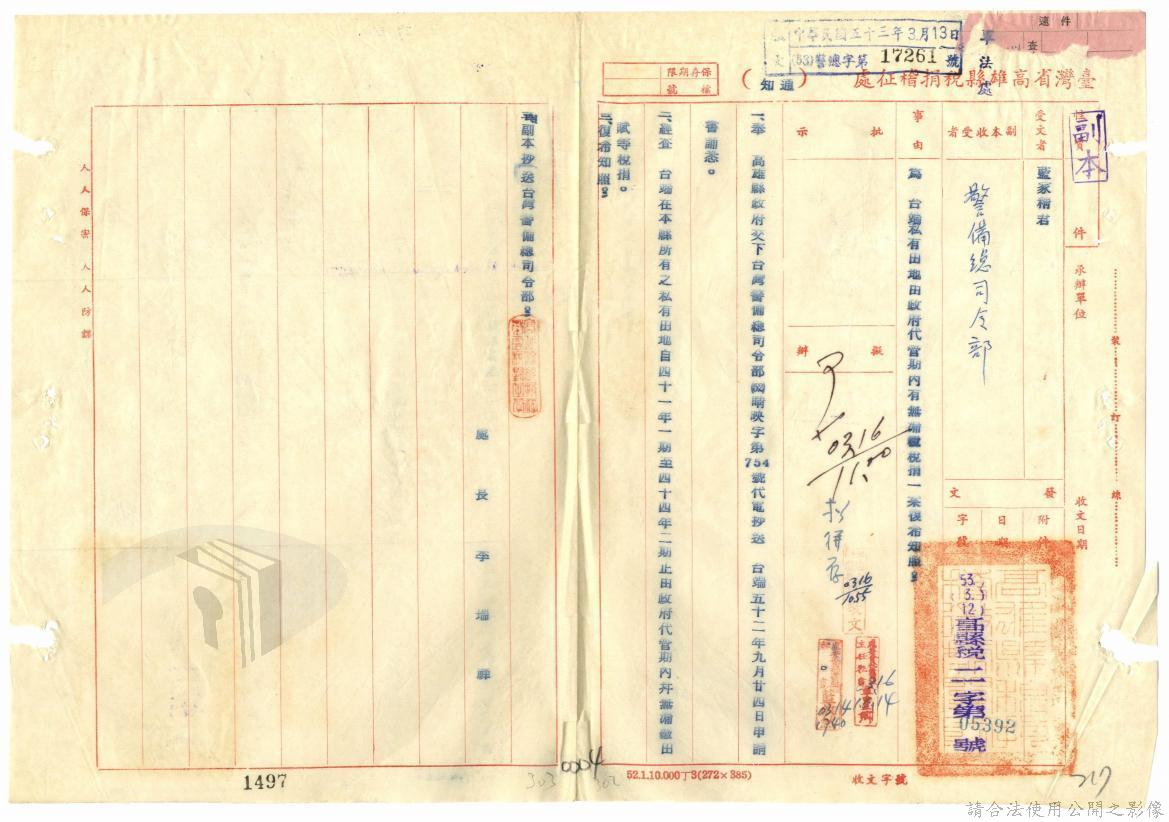 速件
軍法處
中華民國五十三年3月13日
(53)警總字第17261號
臺灣省高雄縣稅捐稽征處
(通知)
保存期限
檔號
副本
件
受文者
藍家精君
副本收受者
警備總司令部
承辦單位
收文日期
裝訂線
發文
附件
日期
字號
53.
3.
12
高縣稅二字第
05392
號
事由
為 台端私有田地由政府代管期內有無補徵稅捐一案復希知照。
批示
擬辦
03.16
11.00
擬併存
0316
1055
一、奉 高雄縣政府交下台灣警備總司令部 字第754號代電抄送 台端五十二年九月廿四日申請
書誦悉。
二、經查 台端在本縣所有之私有田地自四十一年一期至四十四年二期止由政府代管期內并無補繳田
賦等稅捐。
三、復希知照。
四、副本抄送台灣警備總司令部。
處長李瑞
人人保密 人人防諜
1497
303
0004
302
52.1.10.000丁3(272×385)
收文字號
317
請合法使用公開之影像